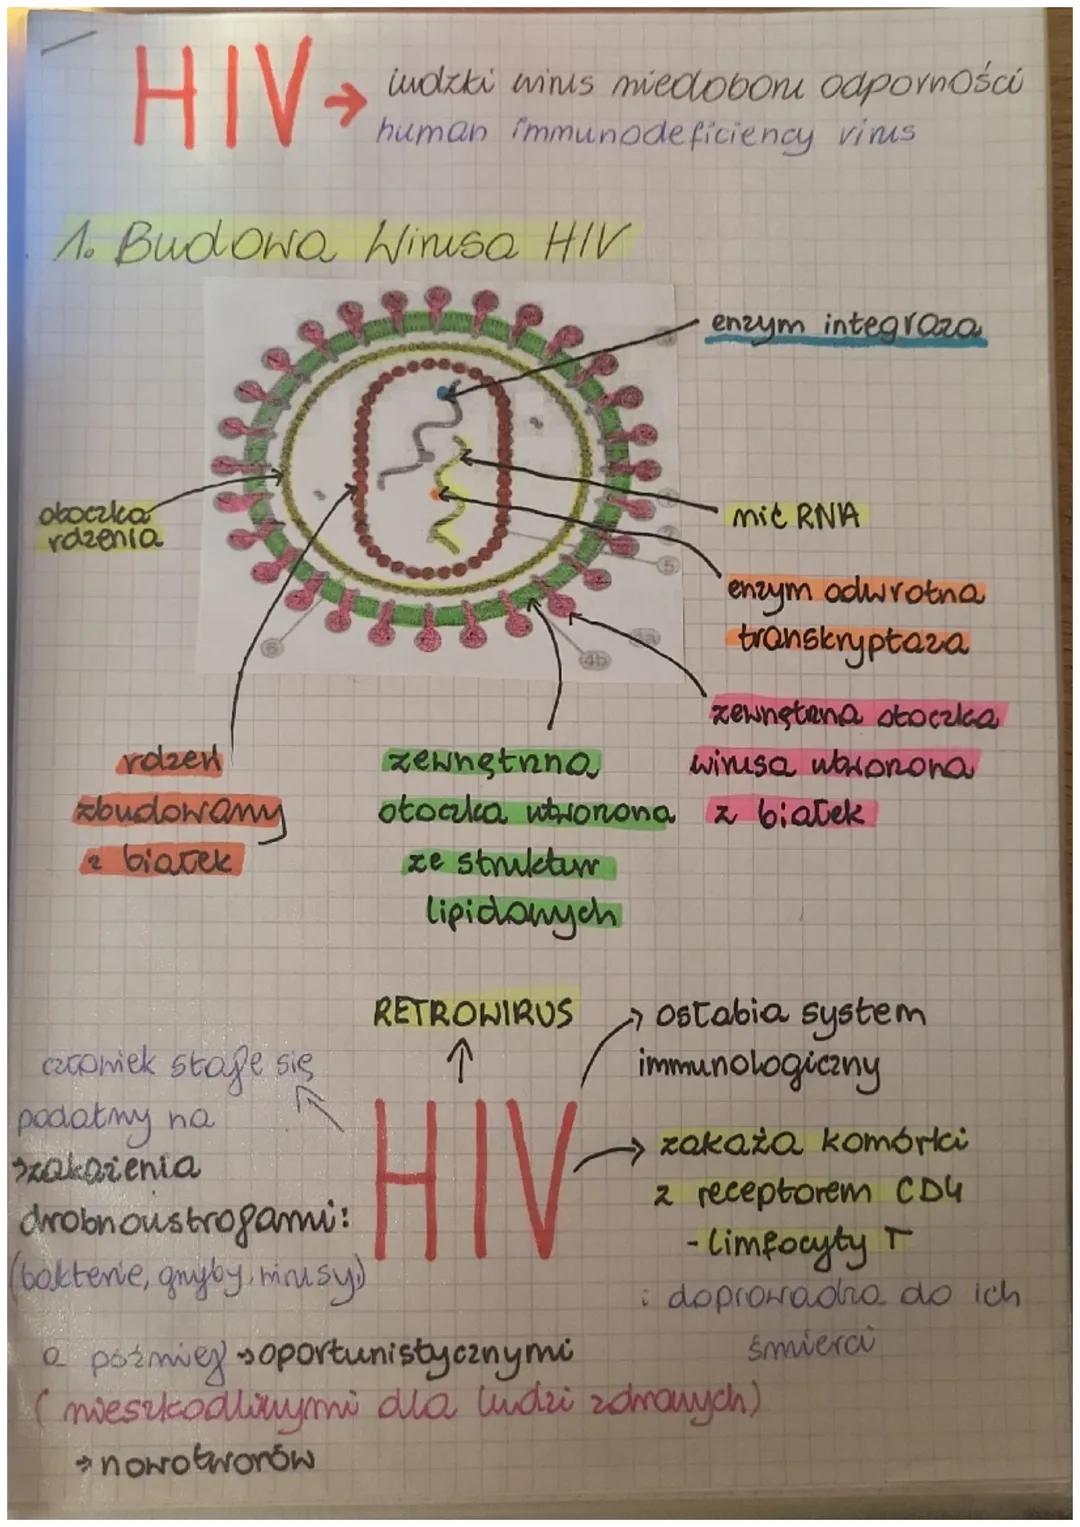 HIV → ludzki wirus niedoboru odporności
human immunodeficiency virus
1. Budowa Wirusa HIV
enzym integraza
otoczka
rdzenia
nić RNA
enzym odwrotna
transkryptaza
zewnętrzna otoczka
wirusa utworzona
z białek
rdzeń
zbudowany
z białek
zewnętrzna
otoczka utworzona
ze struktur
lipidowych
5
6
4b
3a
RETROWIRUS
→ osłabia system
immunologiczny
człowiek staje się
podatny na
→zakażenia
drobnoustrojami:
(bakterie, grzyby, wirusy)
HIV
→ zakaża komórki
z receptorem CD4
- limfocyty T
i doprowadza do ich
śmierci
a później →oportunistycznymi
(nieszkodliwymi dla ludzi zdrowych)
→ nowotworów